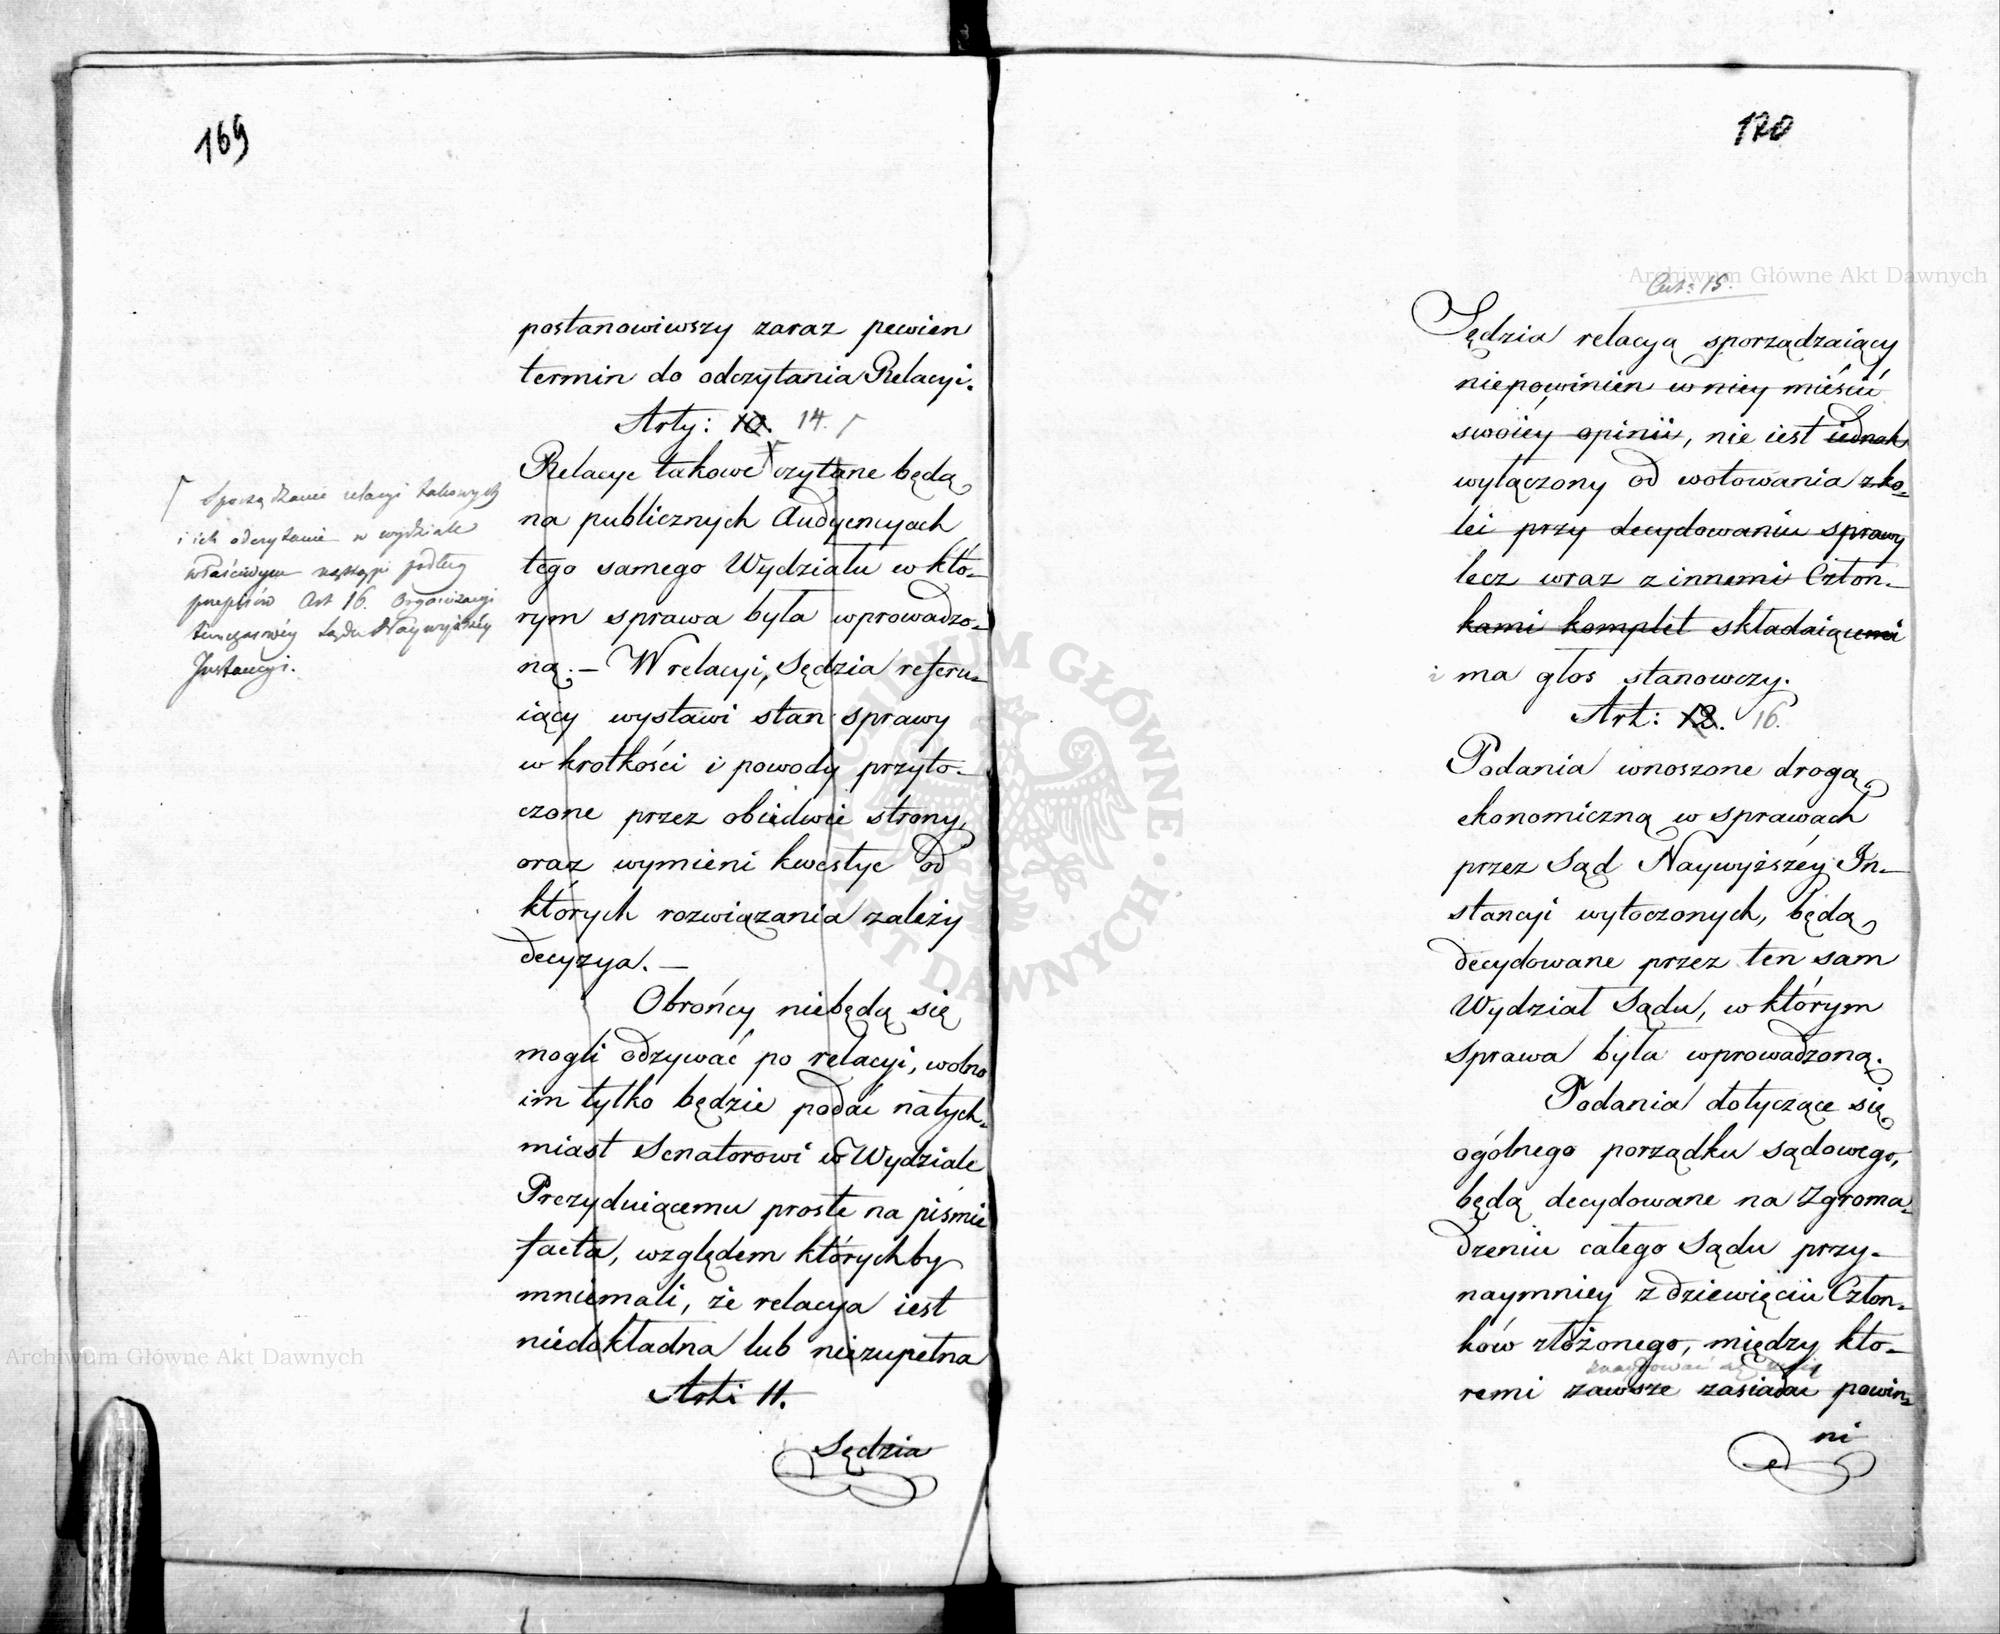 169
postanowiwszy zaraz pewien
termin do odczytania Relacyi.
Arty: 10. 14.
Relacye takowe czytane będą
na publicznych Audyencyach
tego samego Wydziału w któ-
rym sprawa była wprowadzo-
ną. – W relacyi, Sędzia referu-
iący wystawi stan sprawy
w krotkości i powody przyto-
czone przez obiedwie strony,
oraz wymieni kwestye od
których rozwiązania zależy
decyzya. –
Obrońcy niebędą się
mogli odzywać po relacyi, wolno
im tylko będzie podać natych-
miast Senatorowi w Wydziale
Prezyduiącemu proste na piśmie
facta, względem którychby
mniemali, że relacya iest
niedokładna lub niezupełna
Art: 11.
Sędzia
Sporządzanie relacyi takowych
i ich odczytanie w wydziale
właściwym nastąpi podług
przepisów Art 16. Organizacyi
tymczasowéy Sądu Naywyższéy
Instancyi.
170
Art: 15.
Sędzia relacyą sporządzaiący
niepowinien w niey mieścić
swoiey opinii, nie iest iednak
wyłączony od wotowania z ko-
lei przy decydowaniu sprawy
lecz wraz z innemi Człon-
kami komplet składaiącemi
i ma głos stanowczy.
Art: 12. 16.
Podania wnoszone drogą
ekonomiczną w sprawach
przez Sąd Naywyższéy In-
stancyi wytoczonych, będą
decydowane przez ten sam
Wydział Sądu, w którym
sprawa była wprowadzoną.
Podania dotyczące się
ogólnego porządku sądowego,
będą decydowane na Zgroma-
dzeniu całego Sądu przy-
naymniey z dziewięciu Człon-
ków złożonego, między kto-
znaydować się
remi zawsze zasiadać powin-
ni
Archiwum Główne Akt Dawnych
Archiwum Główne Akt Dawnych
ARCHIWUM GŁÓWNE · AKT DAWNYCH ·